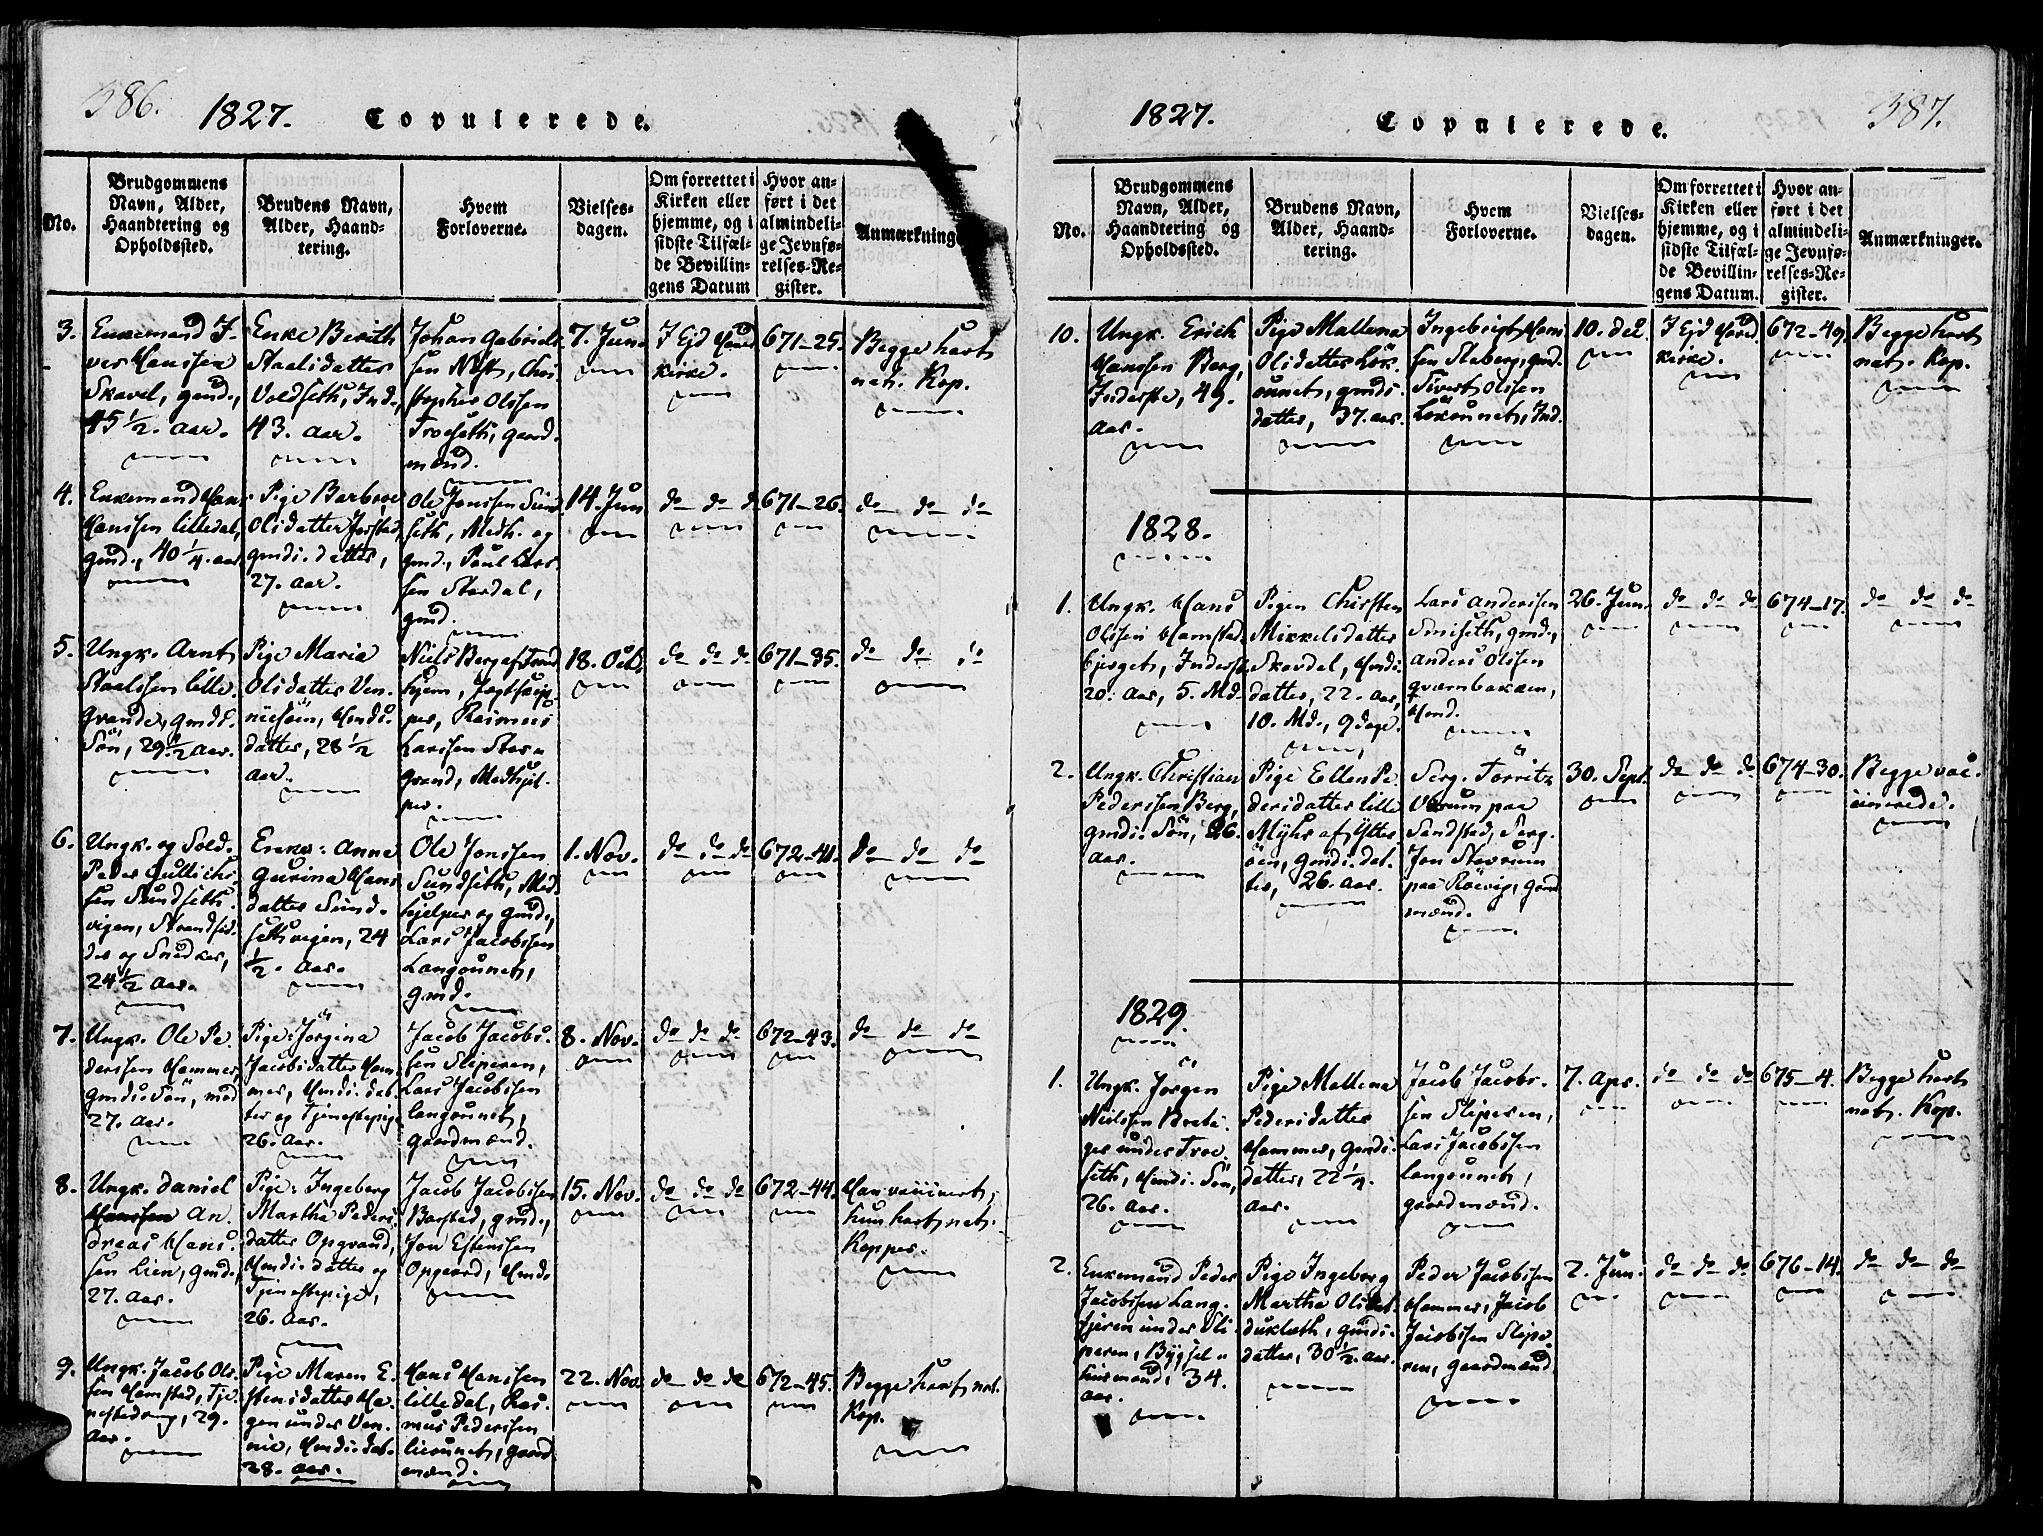 386. 1827. Copulerede.
No.
Brudgommens
Navn, Alder,
Haandtering og
Opholdssted.
Brudens Navn,
Alder, Haand-
tering.
Hvem
Forloverne.
Vielses-
dagen.
Om forrettet i
Kirken eller
hjemme, og i
sidste Tilfæl-
de Bevillin-
gens Datum
Hvor an-
ført i det
almindeli-
ge Jevnfø-
relses-Re-
gister.
Anmærkninge
3.
Enkemand I-
ver Hanssen
Skavel, gmd.,
45 1/2. aar.
Enke Berith
Staalsdatter
Voldseth, Ind.,
43. aar.
Johan Gabriels-
sen Næst, Chri
stopher Olssen
Troeseth, gaard-
mænd.
7. Juni
I Eid Hoved
kirke.
671-25.
Begge havt
nat. Kop.
4.
Enkemand Hans
Hanssen Lilledal,
gmd., 40 1/4. aar
Pige Barbroe
Olsdatter Jerstad,
gmds. datter,
27. aar.
Ole Jonssen Sund
seth, Medh. og
gmd., Paul Lars-
sen Stordal,
gmd.
14. Jun
do do do
671-26.
do do do
5.
Ungk. Arnt
Staalssen Lille-
grande, gmds.
Søn, 29 1/2 aar.
Pige Maria
Olsdatter Ven-
niesøen, Hmds.
datter, 28 1/2
aar.
Niels Berg af Trond
hjem, Jagtskip-
per, Rasmus
Larssen Stor-
grand, Medhjel-
per.
18. Octb
do do do
671-35.
do do do
6.
Ungk. og Sold.
Peder Gullichs
sen Sundseth-
vigen, Strandsid-
der og Snedker,
24 1/2 aar.
Enke: Anne
Gurina Hans
datter Sund-
sethvigen, 24
1/2. aar.
Ole Jonssen
Sundseth, Med-
hjelper og gmd.,
Lars Jacobssen
Langøunet,
gmd.
1. Nov.
do do do
672-41.
do do do
7.
Ungk. Ole Pe-
derssen Hammer,
gmds. Søn, med
27. aar.
Pige: Jørgina
Jacobsdatter Ham
mer, Hmds. dat-
ter og Tjenestepige,
26. aar.
Jacob Jacobs-
sen Sliperen,
Lars Jacobssen
Langøunet,
gaardmænd.
8. Nov.
do do do
672-43.
do do do
8.
Ungk. Daniel
An-
dreas Hans-
sen Lien, gmd.,
27. aar.
Pige: Ingeborg
Martha Peders
datter Opgrand,
Hmds. datter og
Tjenestepige,
26. aar.
Jacob Jacobssen
Barstad, gmd.,
Jon Estenssen
Opgaard, Hmd.
15. Nov.
do do do
672-44.
Han vaccinert,
hun havt nat.
Kopper.
9.
Ungk. Jacob Ols
sen Hamstad, Tje-
nestedreng, 29.
aar.
Pige Maren E-
stensdatter Ha-
gen under Ven-
nie, Hmds. dat.
28. aar.
Hans Hanssen
Lilledal, Ras-
mus Pederssen
Lieøunet, gaard
mænd.
22. Nov.
do do do
672-45.
Begge havt nat.
Kop.
1827. Copulerede. 387.
No.
Brudgommens
Navn, Alder,
Haandtering og
Opholdssted.
Brudens Navn,
Alder, Haand-
tering.
Hvem
Forloverne.
Vielses-
dagen.
Om forrettet i
Kirken eller
hjemme, og i
sidste Tilfæl-
de Bevillin-
gens Datum.
Hvor an-
ført i det
almindeli-
ge Jevnfø-
relses-Re-
gister.
Anmærkninger.
10.
Ungk. Erich
Hanssen Berg,
Inderste, 49.
aar.
Pige Mallena
Olsdatter Løk-
øunet, gmds.
datter, 37. aar.
Ingebrigt Ham
sen Staberg, gmd.
Sivert Olssen
Løxøunet, Ind.
10. Dec.
I Eid Hoved
kirke.
672-49.
Begge havt
nat. Kop.
1828.
1.
Ungk. Hans
Olssen Hamstad-
bjerget, Inderste
20. aar, 5. Md.
Pigen Chirsten
Mikkelsdatter
Skavdal, Hmds.
datter, 22. aar,
10. Md., 9 dage.
Lars Anderssen
Smiseth, gmd.,
Anders Olssen
Qværnbakken,
Hmd.
26. Jun.
do do do
674-17.
do do do
2.
Ungk. Christian
Pederssen Berg,
gmds. Søn, 26.
aar.
Pige Ellen Pe
dersdatter Lille
Myhr af Ytter
øen, gmds. dat-
ter, 26. aar.
Serg. Tørris
paa
Sandstad, Serg.
Jon Stavrum
paa Røevig, gaard
mænd.
30. Sept.
do do do
674-30.
Begge vac-
cinerede.
1829.
1.
Ungk. Jørgen
Nielssen
under Troe-
seth, Hmds. Søn,
26. aar.
Pige Mallena
Pedersdatter
Hammer, gmds.
datter, 22 1/4.
aar.
Jacob Jacobs-
sen Sliperen,
Lars Jacobssen
Langøunet,
gaardmænd.
7. Apr.
do do do
675-4.
Begge havt
nat. Kop.
2.
Enkemand Peder
Jacobssen Lang-
fjæren under Sli-
peren, Bygsel-
huusmand, 34.
aar.
Pige Ingeborg
Martha Olsdat.
Dukleth, gmds.
datter, 30 1/2. aar.
Peder Jacobssen
Hammer, Jacob
Jacobssen Slipe-
ren, gaardmænd
2. Jun.
do do do
676-14.
do do do